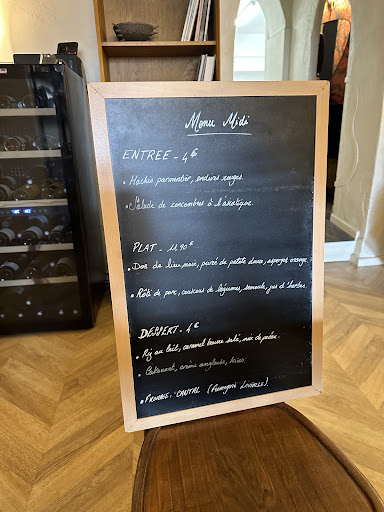 Menu Midi
ENTREE - 4€
• Hachis parmentier, endives rouges.
• Salade de concombres à l'asiatique.
PLAT - 11,90 €
• Dos de lieu noir, purée de patate douce, asperges
• Rôti de porc, couscous de légumes, semoule, jus d'herbes.
DESSERT - 4€
• Riz au lait, caramel beurre salé, noix de pécan.
• crème anglaise, kiwi.
• FROMAGE : CANTAL